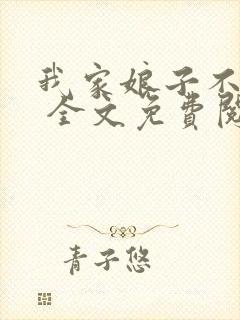 我家娘子不
全文免費閱
青子悠